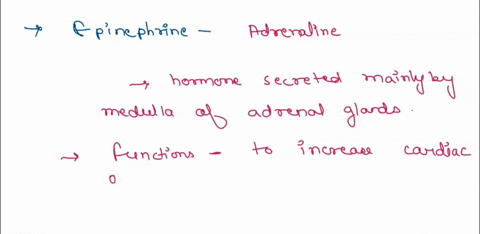 → Epinephrine - Adrenaline
→ hormone secreted mainly by
medulla of adrenal glands.
→ functions - to increase cardiac
o